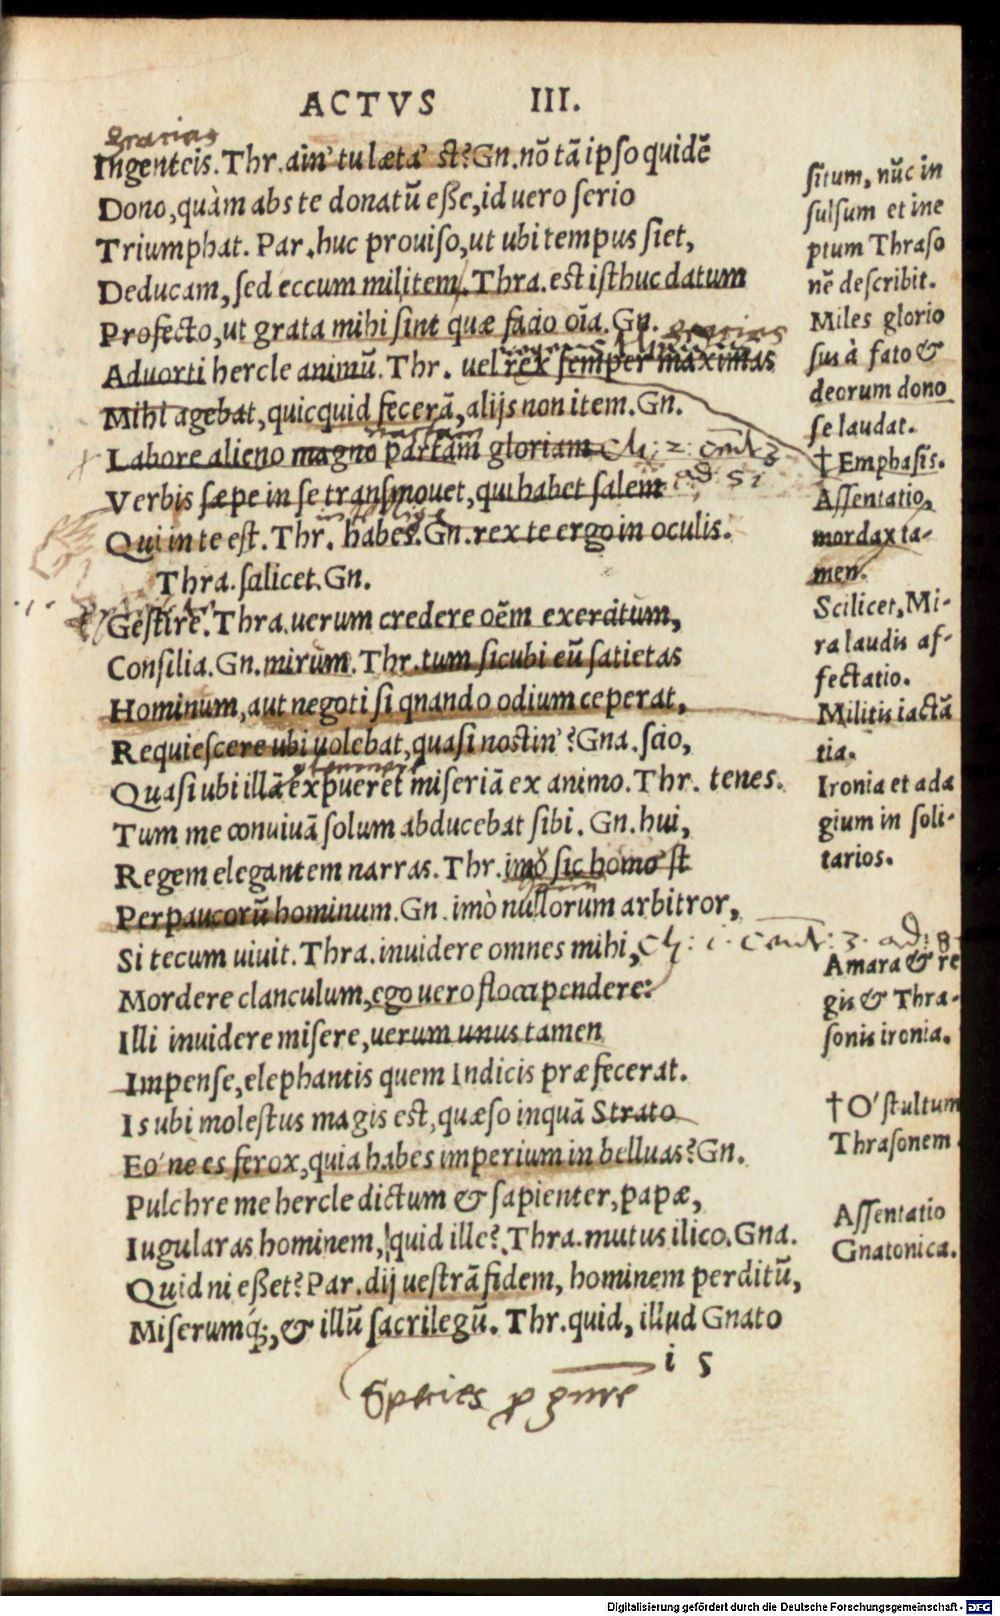 ACTVS III.
gratias
Ingenteis. Thr. ain' tu læta' st? Gn. nõ tã ipso quidẽ
Dono, quàm abs te donatũ eße, id uero serio
Triumphat. Par. huc prouiso, ut ubi tempus siet,
Deducam, sed eccum militem. Thra. est isthuc datum
Profecto, ut grata mihi sint quæ facio oĩa. Gn.
gratias
Aduorti hercle animũ. Thr. uel rex semper maximas
Mihi agebat, quicquid fecerã, alijs non item. Gn.
Labore alieno magno partam gloriam
Verbis sæpe in se transmouet, qui habet salem
Qui in te est. Thr. habes. Gn. rex te ergo in oculis.
Thra. scilicet. Gn.
Gestire. Thra. uerum credere oẽm exercitum,
Consilia. Gn. mirum. Thr. tum sicubi eũ satietas
Hominum, aut negoti si qnando odium ceperat,
Requiescere ubi uolebat, quasi nostin'? Gna. scio,
Quasi ubi illã expueret miseriã ex animo. Thr. tenes.
Tum me conuiuã solum abducebat sibi. Gn. hui,
Regem elegantem narras. Thr. imò sic homo st
Perpaucorũ hominum. Gn. imò nullorum arbitror,
Si tecum uiuit. Thra. inuidere omnes mihi,
Mordere clanculum, ego uero flocci pendere:
Illi inuidere misere, uerum unus tamen
Impense, elephantis quem Indicis præfecerat.
Is ubi molestus magis est, quæso inquã Strato
Eo' ne es ferox, quia habes imperium in belluas? Gn.
Pulchre me hercle dictum & sapienter, papæ,
Iugularas hominem, quid ille? Thra. mutus ilico. Gna.
Quid ni eßet? Par. dij uestrã fidem, hominem perditũ,
Miserumq́;, & illũ sacrilegũ. Thr. quid, illud Gnato
i 5
Species p genere
situm, nũc in
sulsum et ine
ptum Thraso
nẽ describit.
Miles glorio
sus à fato &
deorum dono
se laudat.
† Emphasis.
Assentatio,
mordax ta-
men.
Scilicet, Mi-
ra laudis af-
fectatio.
Militis iactã
tia.
Ironia et ada
gium in soli-
tarios.
Amara & re
gis & Thra-
sonis ironia.
† O' stultum
Thrasonem.
Assentatio
Gnatonica.
Digitalisierung gefördert durch die Deutsche Forschungsgemeinschaft - DFG